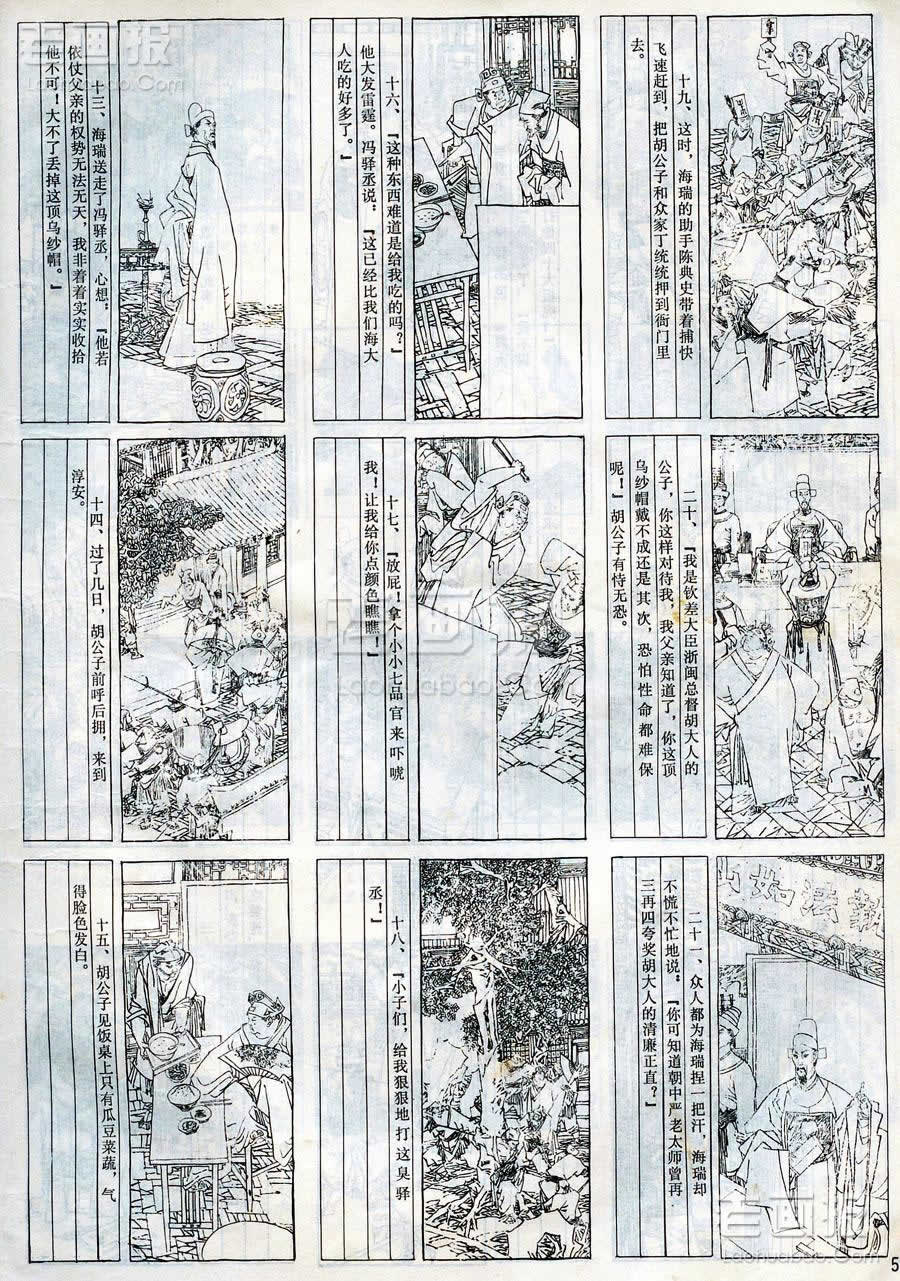 老画报
Laohuabao.Com
十三、海瑞送走了冯驿丞，心想：“他若
依仗父亲的权势无法无天，我非着着实实收拾
他不可！大不了丢掉这顶乌纱帽。”
十四、过了几日，胡公子前呼后拥，来到
淳安。
十五、胡公子见饭桌上只有瓜豆菜蔬，气
得脸色发白。
十六、“这种东西难道是给我吃的吗？”
他大发雷霆。冯驿丞说：“这已经比我们海大
人吃的好多了。”
十七、“放屁！拿个小小七品官来吓唬
我！让我给你点颜色瞧瞧！”
十八、“小子们，给我狠狠地打这臭驿
丞！”
十九、这时，海瑞的助手陈典史带着捕快
飞速赶到，把胡公子和众家丁统统押到衙门里
去。
二十、“我是钦差大臣浙闽总督胡大人的
公子，你这样对待我，我父亲知道了，你这顶
乌纱帽戴不成还是其次，恐怕性命都难保
呢！”胡公子有恃无恐。
二十一、众人都为海瑞捏一把汗，海瑞却
不慌不忙地说：“你可知道朝中严老太师曾再
三再四夸奖胡大人的清廉正直？”
执法如山
老画报
Laohuabao.Com
老画报
Laohuabao.Com
5